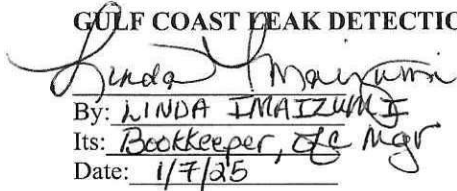 GULF COAST LEAK DETECTIO
Linda Imaizumi
By: LINDA IMAIZUMI
Its: Bookkeeper, Ofc Mgr
Date: 1/7/25